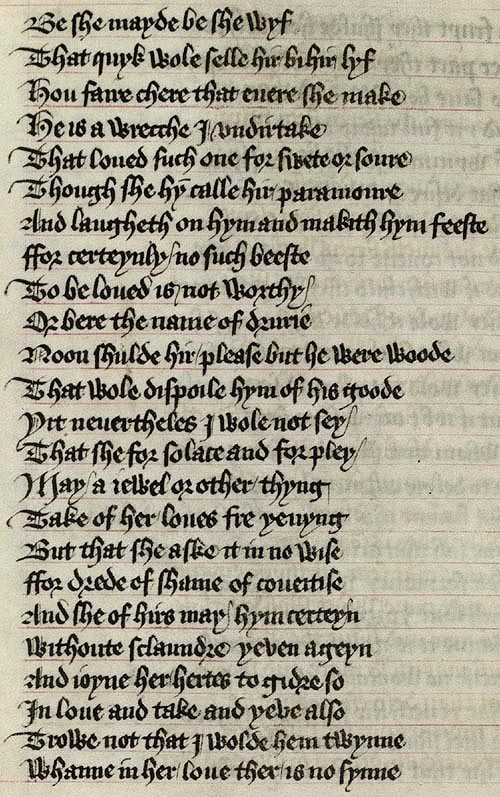 Be she mayde be she wyf
That quyk wole selle hir bi hir lyf
Hou faire chere that euere she make
He is a wrecche I vndirtake
That loued such one for swete or soure
Though she hym calle hir paramoure
And laugheth on hym and makith hym feeste
ffor certeynly / no such beeste
To be loued is / not worthy /
Or bere the name of drurie
Noon shulde hir / please but he were woode
That wole dispoile hym of his goode
Yit neuertheles I wole not sey /
That she for solace and for pley /
May / a iewel or other / thyng
Take of her loues fre yeuyng
But that she aske it in no wise
ffor drede of shame of coueitise
And she of hirs may / hym certeyn
Withoute sclaundre yeven ageyn
And ioyne her hertes to gidre so
In loue and take and yeve also
Trowe not that I wolde hem twynne
Whanne in her / loue ther / is no synne